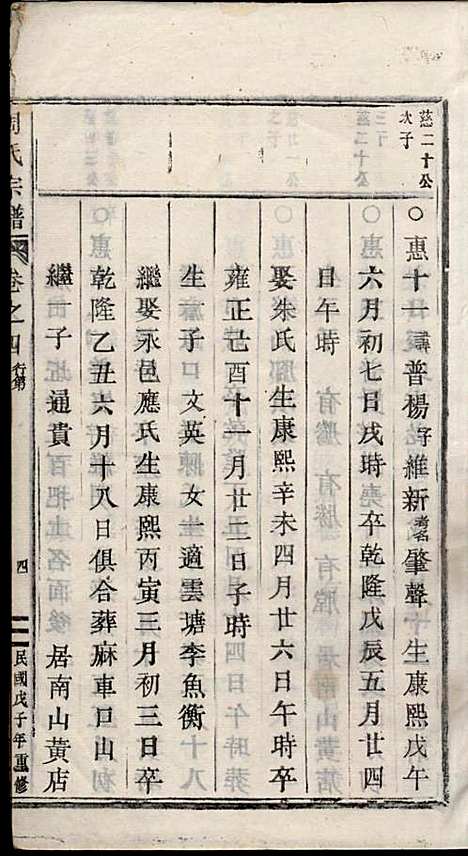 慈二十公
次子
○惠十一 諱普楊 字維新 考名肇聲 生康熙戊午
六月初七日戌時 卒乾隆戊辰五月廿四
日午時
娶朱氏 生康熙辛未四月廿六日午時 卒
雍正己酉十一月廿二日子時
生一子 文英 女一 適雲塘李魚衡
繼娶永邑應氏 生康熙丙寅三月初三日 卒
乾隆乙丑六月十八日 俱合葬麻車口山
繼一子 通貴 居南山黃店
周氏宗譜 卷之四 行第 四 民國戊子年重修